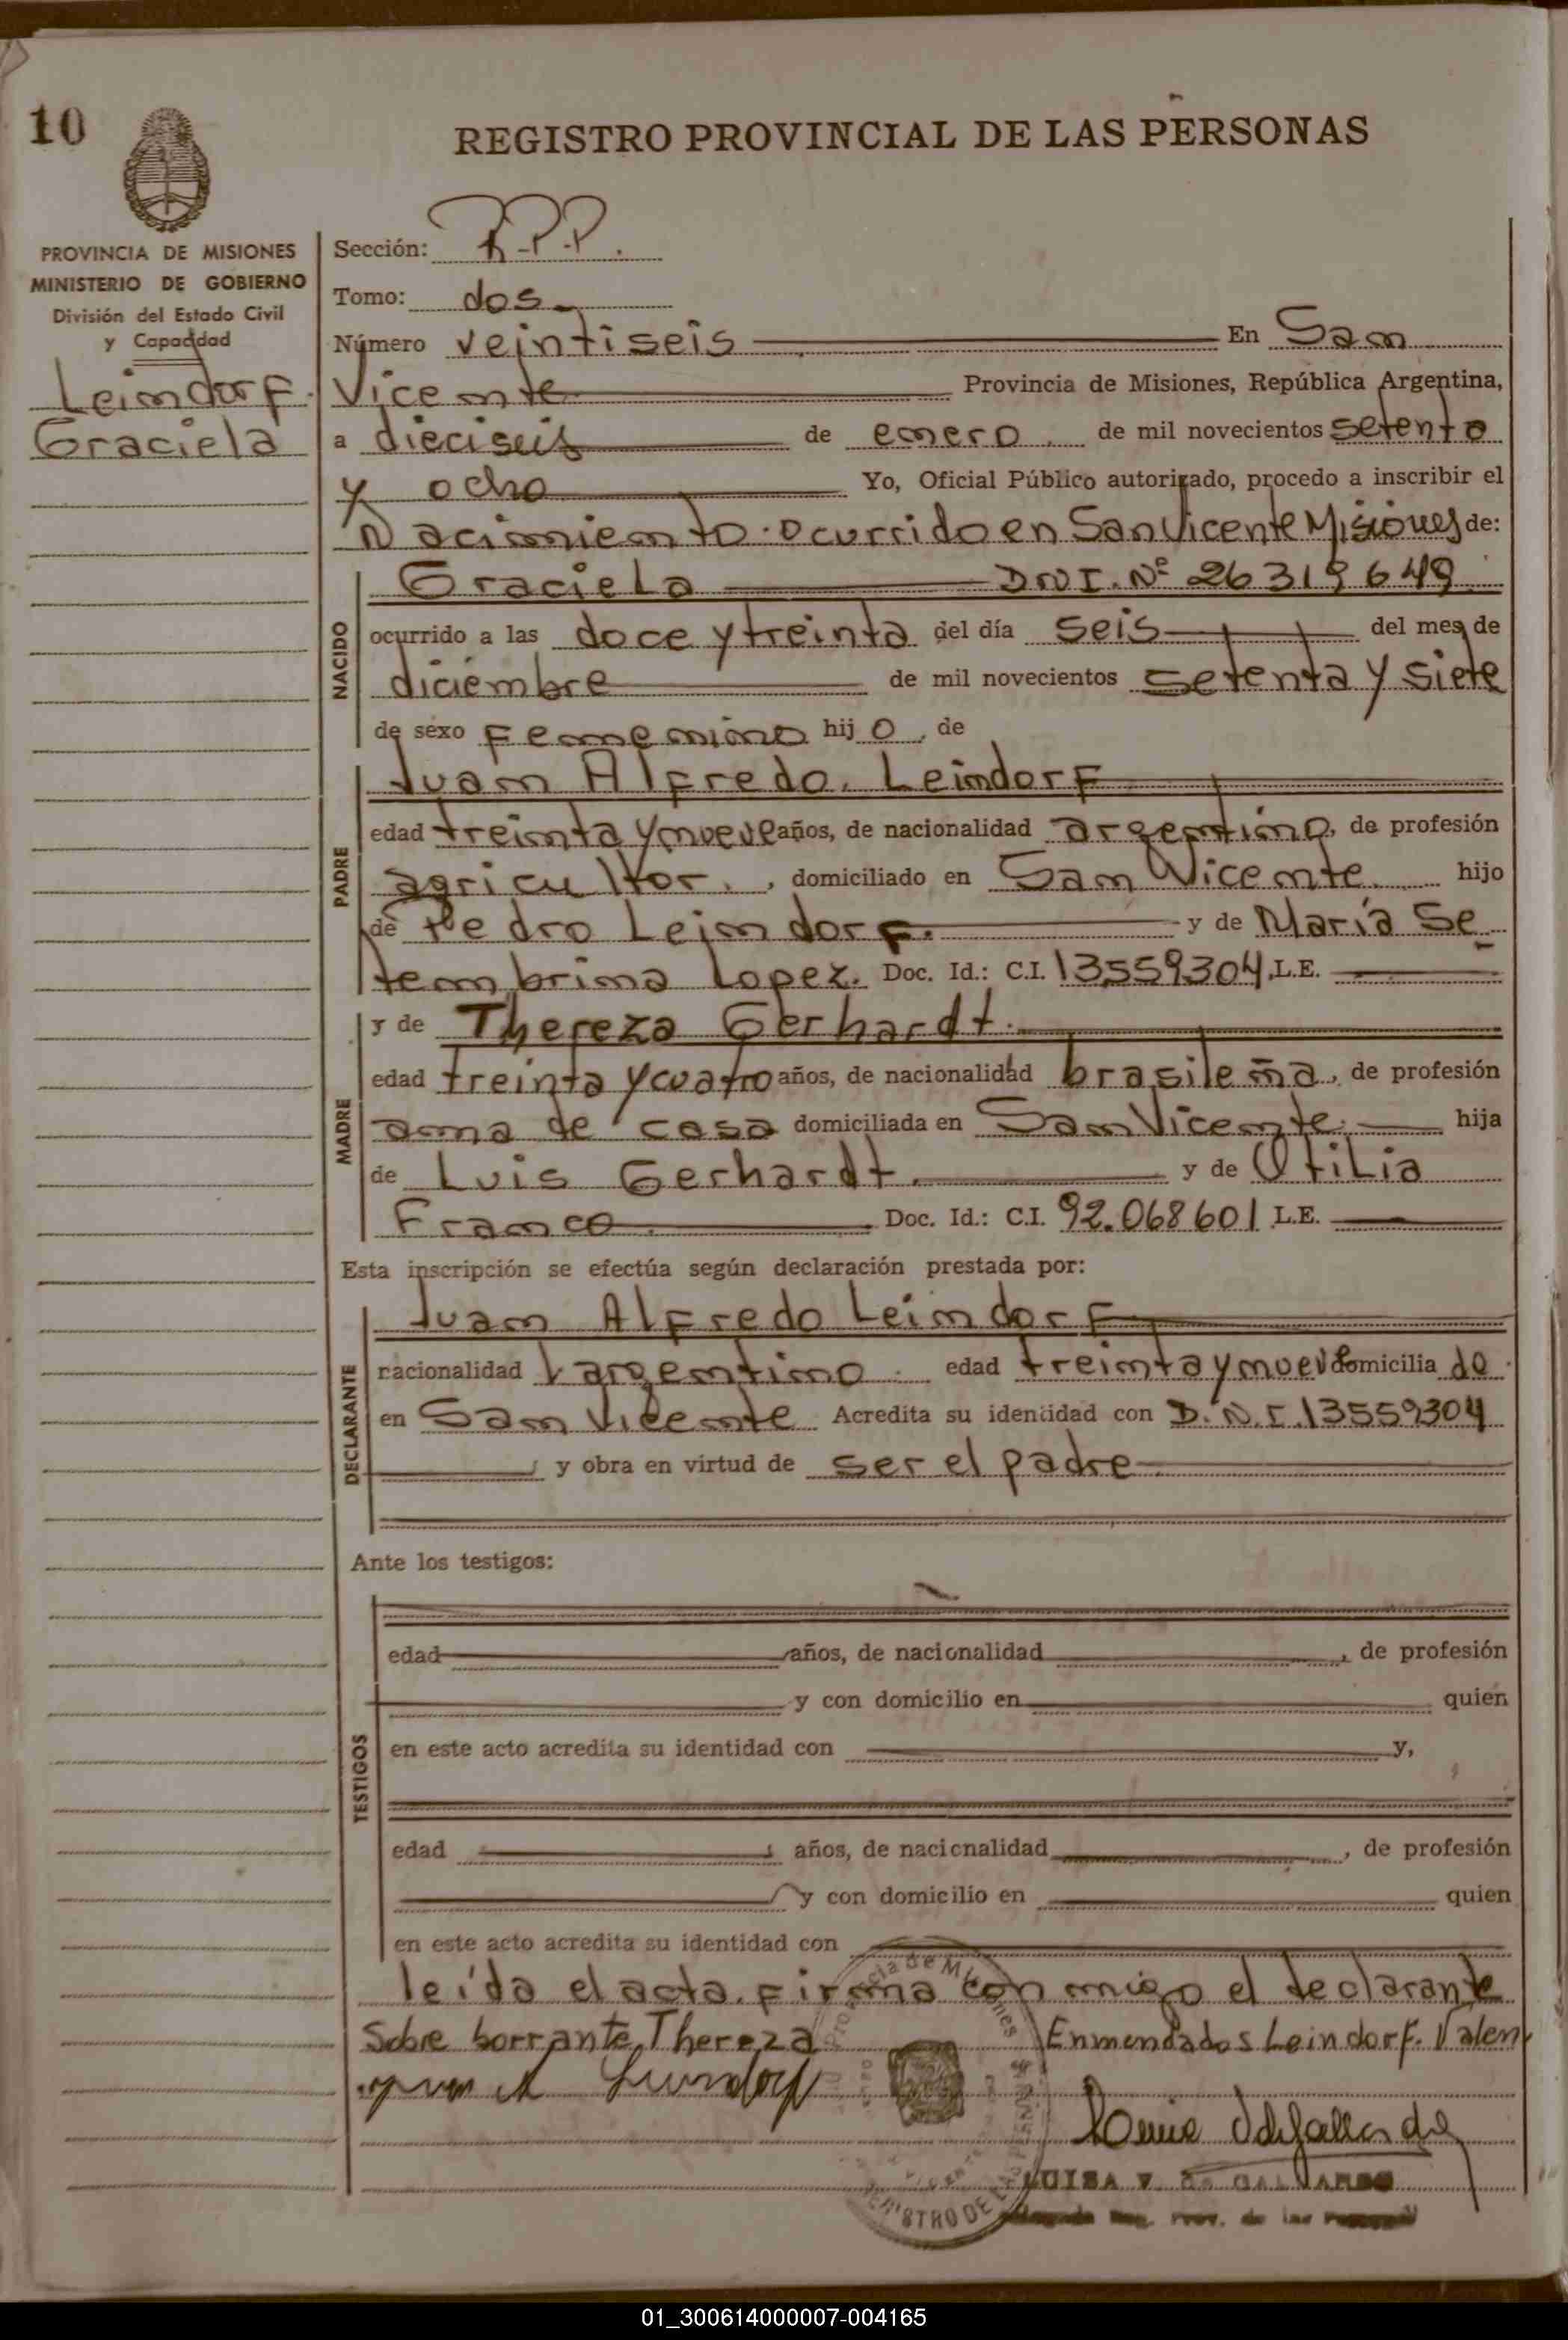 10
REGISTRO PROVINCIAL DE LAS PERSONAS
PROVINCIA DE MISIONES
MINISTERIO DE GOBIERNO
División del Estado Civil
y Capacidad
Leindorf.
Graciela
Sección: R.P.P.
Tomo: dos
Número veintiseis En San
Vicente Provincia de Misiones, República Argentina,
a dieciseis de enero de mil novecientos setenta
y ocho Yo, Oficial Público autorizado, procedo a inscribir el
Nacimiento ocurrido en San Vicente Misiones de:
NACIDO
Graciela D.N.I. Nº 26319649
ocurrido a las doce y treinta del día seis del mes de
diciembre de mil novecientos setenta y siete
de sexo femenino hij o, de
PADRE
Juan Alfredo Leindorf
edad treinta y nueve años, de nacionalidad argentino, de profesión
agricultor, domiciliado en San Vicente hijo
de Pedro Leindorf. y de María Se
tembrina Lopez. Doc. Id.: C.I. 13559304, L.E.
MADRE
y de Thereza Gerhardt.
edad treinta y cuatro años, de nacionalidad brasileña, de profesión
ama de casa domiciliada en San Vicente hija
de Luis Gerhardt y de Otilia
Franco Doc. Id.: C.I. 92.068601 L.E.
Esta inscripción se efectúa según declaración prestada por:
DECLARANTE
Juan Alfredo Leindorf
nacionalidad argentino edad treinta y nueve domicilia do
en San Vicente Acredita su identidad con D.N.I. 13559304
y obra en virtud de ser el padre
Ante los testigos:
TESTIGOS
edad años, de nacionalidad, de profesión
y con domicilio en quien
en este acto acredita su identidad con y,
edad años, de nacionalidad, de profesión
y con domicilio en quien
en este acto acredita su identidad con
leída el acta firma con migo el declarante
Sobre borrante Thereza Enmendados Leindorf. Valen
Leindorf
LUISA V. de GALVARSO
01_300614000007-004165